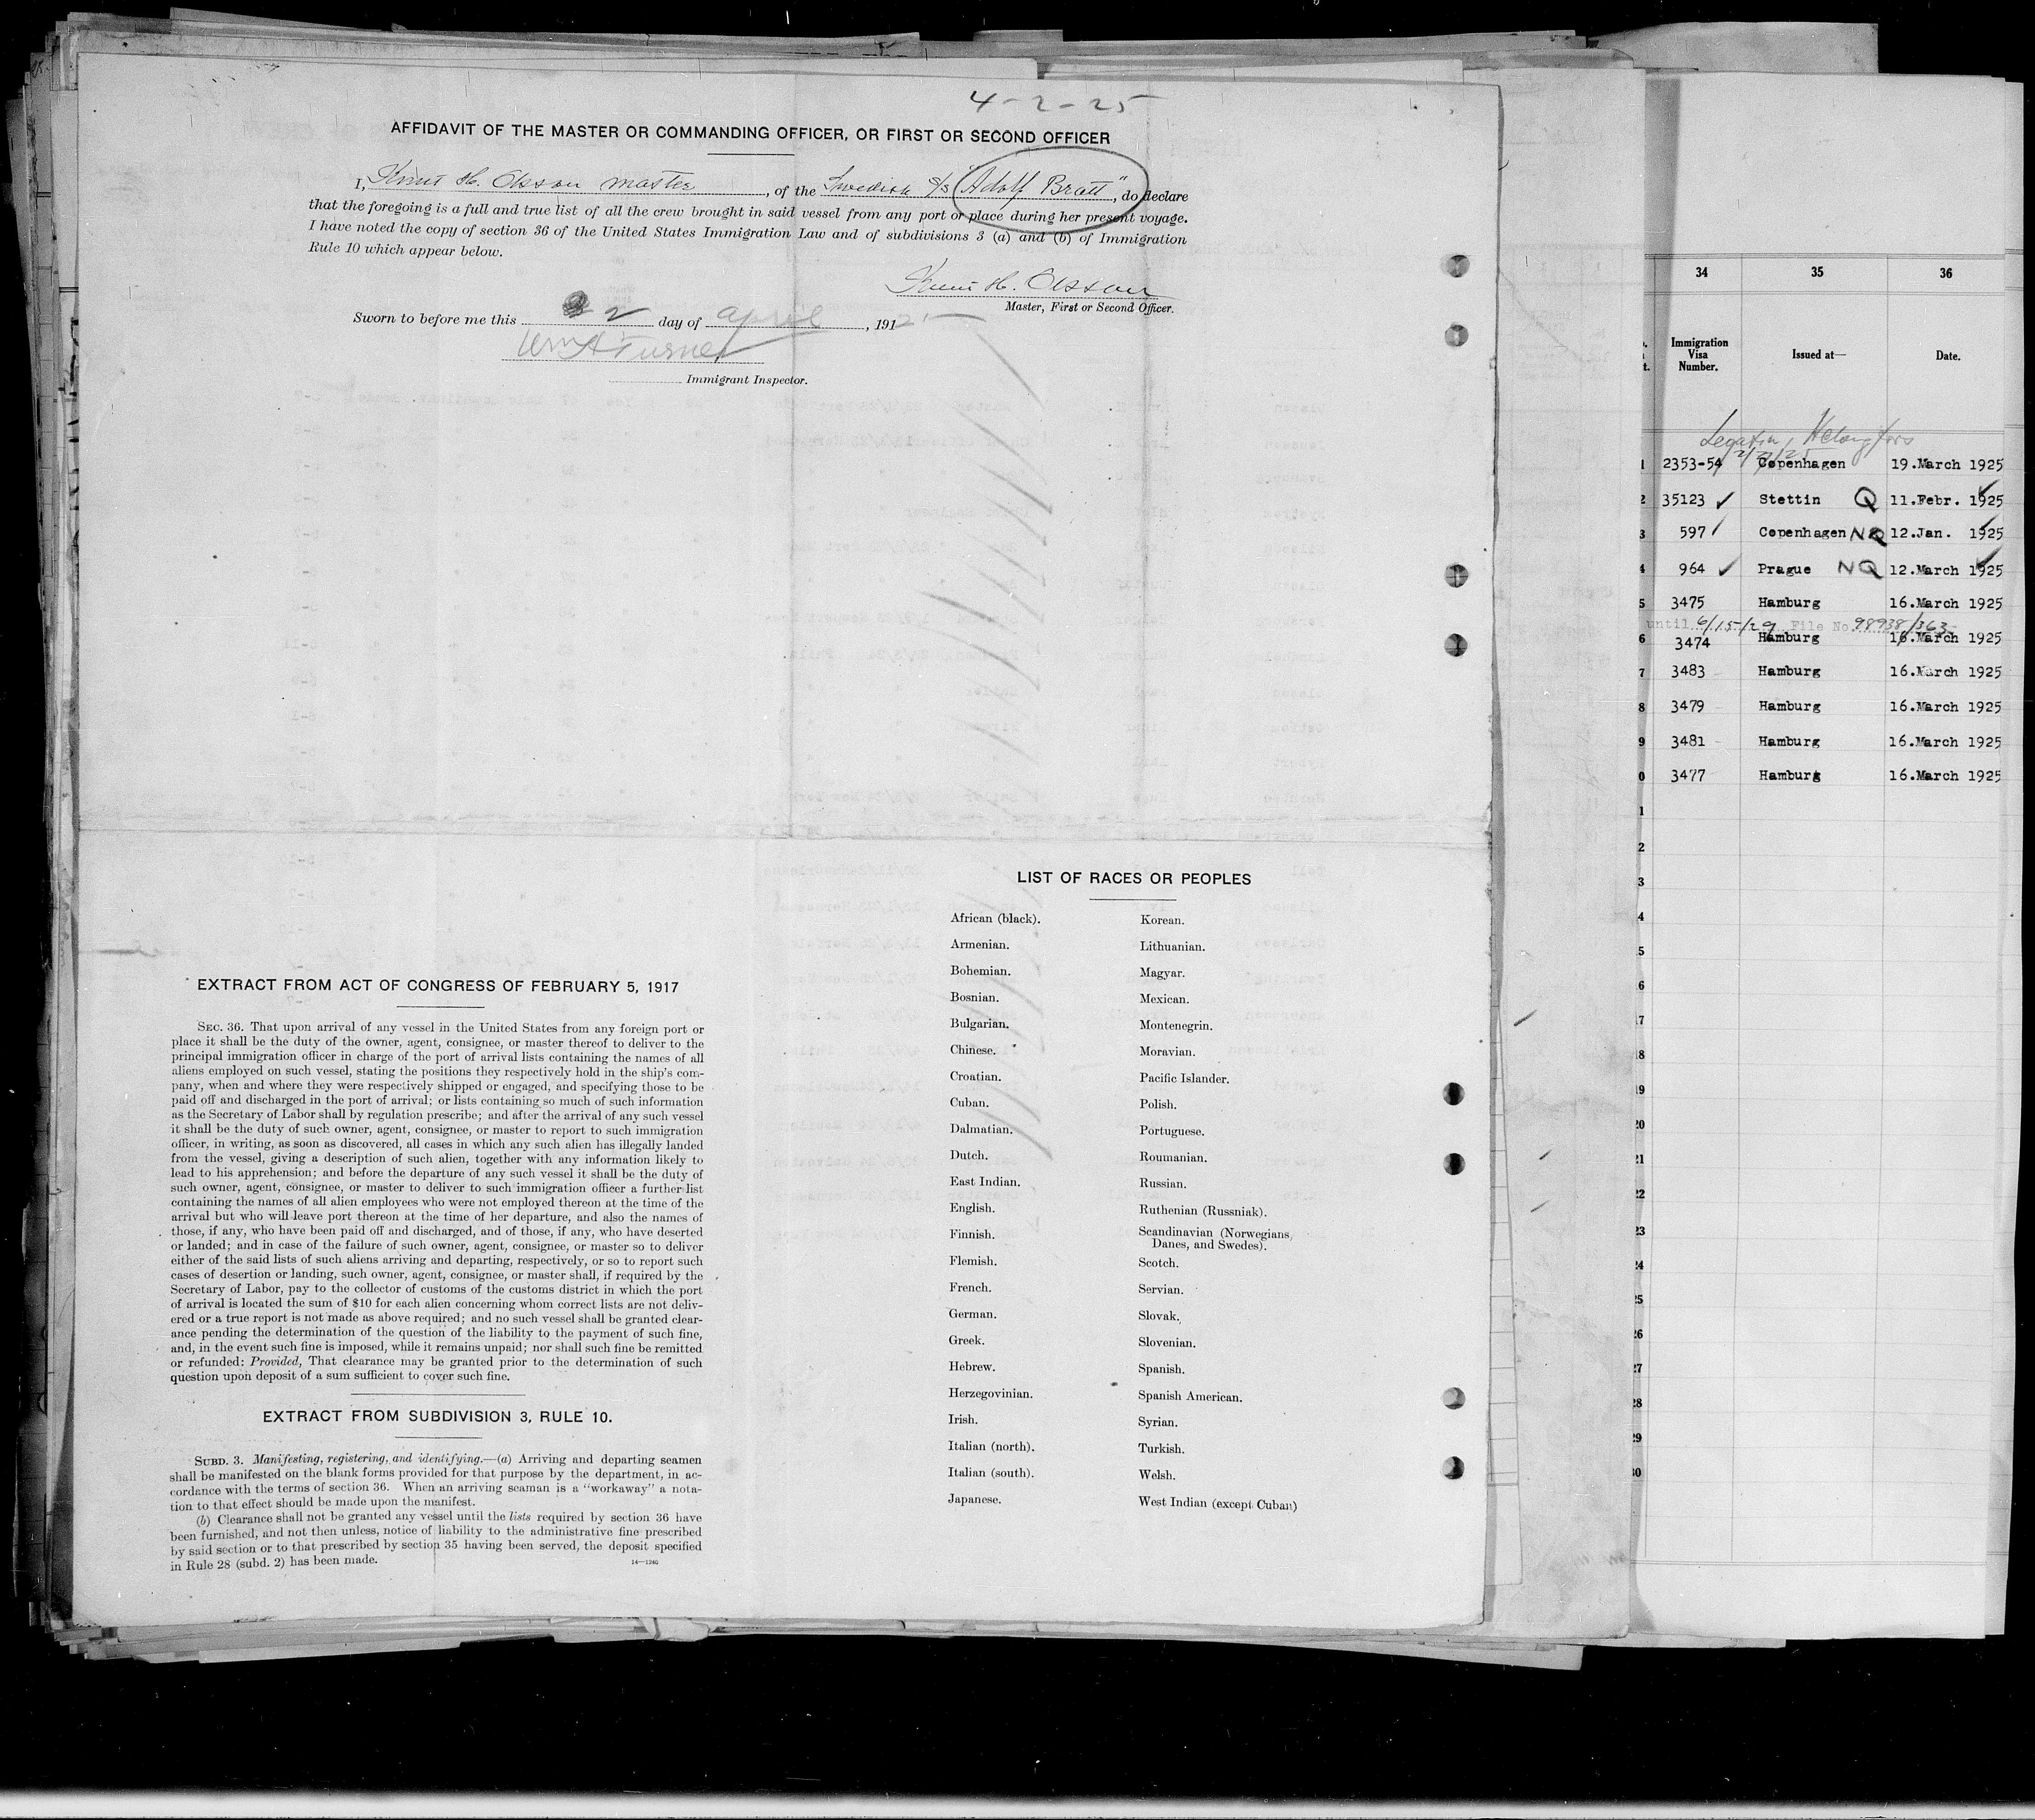 4-2-25
AFFIDAVIT OF THE MASTER OR COMMANDING OFFICER, OR FIRST OR SECOND OFFICER
I, Knut H. Olsson master, of the Swedish S/S "Adolf Bratt", do declare
that the foregoing is a full and true list of all the crew brought in said vessel from any port or place during her present voyage.
I have noted the copy of section 36 of the United States Immigration Law and of subdivisions 3 (a) and (b) of Immigration
Rule 10 which appear below.
Knut H. Olsson
Master, First or Second Officer.
Sworn to before me this 2 day of april, 1925
Wm A Turner
Immigrant Inspector.
EXTRACT FROM ACT OF CONGRESS OF FEBRUARY 5, 1917
SEC. 36. That upon arrival of any vessel in the United States from any foreign port or
place it shall be the duty of the owner, agent, consignee, or master thereof to deliver to the
principal immigration officer in charge of the port of arrival lists containing the names of all
aliens employed on such vessel, stating the positions they respectively hold in the ship's com-
pany, when and where they were respectively shipped or engaged, and specifying those to be
paid off and discharged in the port of arrival; or lists containing so much of such information
as the Secretary of Labor shall by regulation prescribe; and after the arrival of any such vessel
it shall be the duty of such owner, agent, consignee, or master to report to such immigration
officer, in writing, as soon as discovered, all cases in which any such alien has illegally landed
from the vessel, giving a description of such alien, together with any information likely to
lead to his apprehension; and before the departure of any such vessel it shall be the duty of
such owner, agent, consignee, or master to deliver to such immigration officer a further list
containing the names of all alien employees who were not employed thereon at the time of the
arrival but who will leave port thereon at the time of her departure, and also the names of
those, if any, who have been paid off and discharged, and of those, if any, who have deserted
or landed; and in case of the failure of such owner, agent, consignee, or master so to deliver
either of the said lists of such aliens arriving and departing, respectively, or so to report such
cases of desertion or landing, such owner, agent, consignee, or master shall, if required by the
Secretary of Labor, pay to the collector of customs of the customs district in which the port
of arrival is located the sum of $10 for each alien concerning whom correct lists are not deliv-
ered or a true report is not made as above required; and no such vessel shall be granted clear-
ance pending the determination of the question of the liability to the payment of such fine,
and, in the event such fine is imposed, while it remains unpaid; nor shall such fine be remitted
or refunded: Provided, That clearance may be granted prior to the determination of such
question upon deposit of a sum sufficient to cover such fine.
EXTRACT FROM SUBDIVISION 3, RULE 10.
SUBD. 3. Manifesting, registering, and identifying.—(a) Arriving and departing seamen
shall be manifested on the blank forms provided for that purpose by the department, in ac-
cordance with the terms of section 36. When an arriving seaman is a "workaway" a nota-
tion to that effect should be made upon the manifest.
(b) Clearance shall not be granted any vessel until the lists required by section 36 have
been furnished, and not then unless, notice of liability to the administrative fine prescribed
by said section or to that prescribed by section 35 having been served, the deposit specified
in Rule 28 (subd. 2) has been made.
14—1240
LIST OF RACES OR PEOPLES
African (black).
Armenian.
Bohemian.
Bosnian.
Bulgarian.
Chinese.
Croatian.
Cuban.
Dalmatian.
Dutch.
East Indian.
English.
Finnish.
Flemish.
French.
German.
Greek.
Hebrew.
Herzegovinian.
Irish.
Italian (north).
Italian (south).
Japanese.
Korean.
Lithuanian.
Magyar.
Mexican.
Montenegrin.
Moravian.
Pacific Islander.
Polish.
Portuguese.
Roumanian.
Russian.
Ruthenian (Russniak).
Scandinavian (Norwegians,
Danes, and Swedes).
Scotch.
Servian.
Slovak.
Slovenian.
Spanish.
Spanish American.
Syrian.
Turkish.
Welsh.
West Indian (except Cuban)
34 35 36
Immigration
Visa
Number.
Issued at—
Date.
Legation, Helsingfors
1 2353-54 Copenhagen 19.March 1925
2 35123 ✓ Stettin Q 11.Febr. 1925
3 597 Copenhagen NQ 12.Jan. 1925
4 964 ✓ Prague NQ 12.March 1925
5 3475 Hamburg 16.March 1925
until 6/15/29 File No. 98938/363
6 3474 Hamburg 16.March 1925
7 3483 Hamburg 16.March 1925
8 3479 Hamburg 16.March 1925
9 3481 Hamburg 16.March 1925
0 3477 Hamburg 16.March 1925
1
2
3
4
5
6
17
18
19
20
21
22
23
24
25
26
27
28
29
30